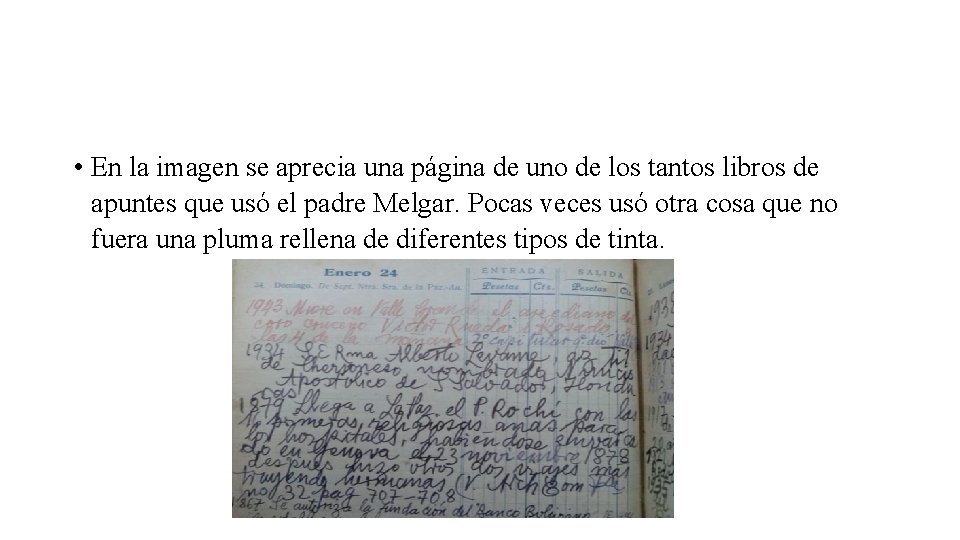 • En la imagen se aprecia una página de uno de los tantos libros de
apuntes que usó el padre Melgar. Pocas veces usó otra cosa que no
fuera una pluma rellena de diferentes tipos de tinta.
Enero 24 ENTRADA SALIDA
24. Domingo. De Sept. Ntra. Sra. de la Paz. Pesetas Cts. Pesetas Cts.
1943 Muere en Valle Grande el arcediano del
coro cruceño Victor Rueda i Rosado
las 4 de la mañana
1934 S.E. Rma Alberto Levame,
de Chersoneso, nombrado Nuncio
Apostólico de S Salvador,
1879 Llega a La Paz el P. Rochi con las
11 primeras religiosas anas para
los hospitales, habiendose embarca
do en Genova el 23 noviembre 1878
despues hizo otros dos viajes mas
trayendo hermanas (V. Arch
no 32 pag 707-708
1867 Se autoriza la fundacion del Banco Boliviano